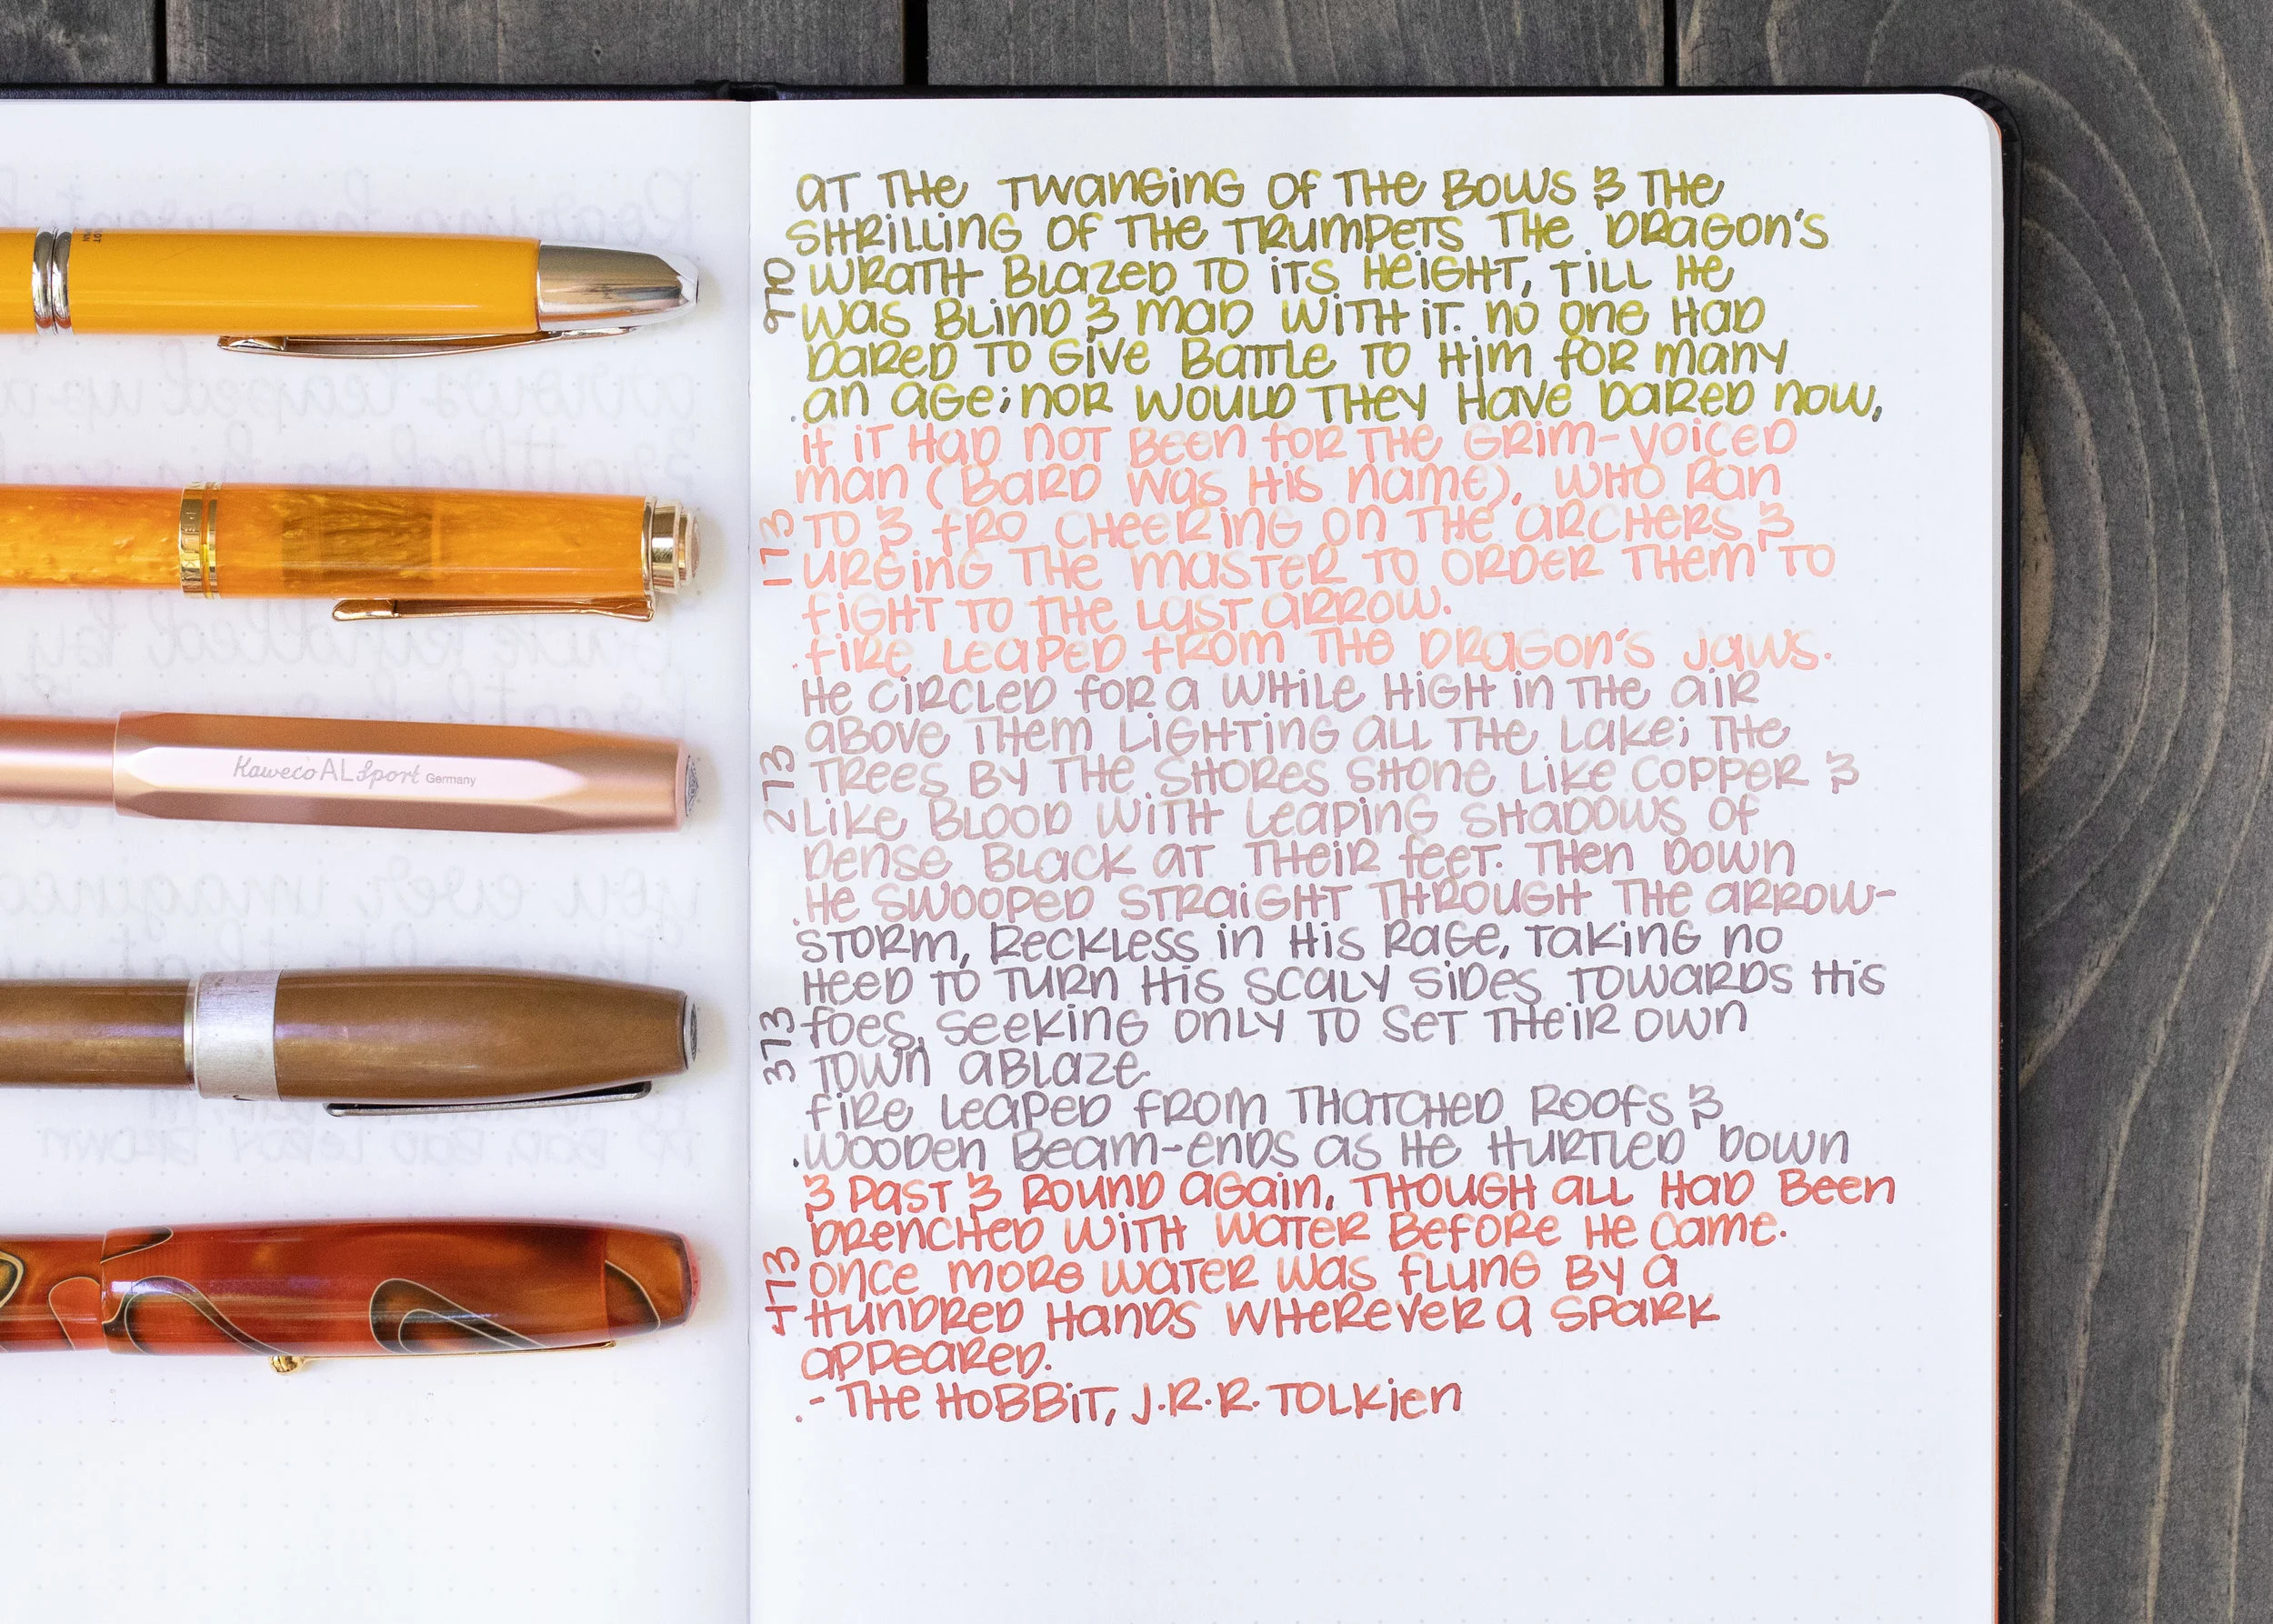 AT THE TWANGING OF THE BOWS & THE
SHRILLING OF THE TRUMPETS THE DRAGON'S
WRATH BLAZED TO ITS HEIGHT, TILL HE
WAS BLIND & MAD WITH IT. NO ONE HAD
DARED TO GIVE BATTLE TO HIM FOR MANY
AN AGE; NOR WOULD THEY HAVE DARED NOW,
970
IF IT HAD NOT BEEN FOR THE GRIM-VOICED
MAN (BARD WAS HIS NAME), WHO RAN
TO & FRO CHEERING ON THE ARCHERS &
URGING THE MASTER TO ORDER THEM TO
FIGHT TO THE LAST ARROW.
FIRE LEAPED FROM THE DRAGON'S JAWS.
173
HE CIRCLED FOR A WHILE HIGH IN THE AIR
ABOVE THEM LIGHTING ALL THE LAKE; THE
TREES BY THE SHORES SHONE LIKE COPPER &
LIKE BLOOD WITH LEAPING SHADOWS OF
DENSE BLACK AT THEIR FEET. THEN DOWN
HE SWOOPED STRAIGHT THROUGH THE ARROW-
273
STORM, RECKLESS IN HIS RAGE, TAKING NO
HEED TO TURN HIS SCALY SIDES TOWARDS HIS
FOES, SEEKING ONLY TO SET THEIR OWN
TOWN ABLAZE.
FIRE LEAPED FROM THATCHED ROOFS &
WOODEN BEAM-ENDS AS HE HURTLED DOWN
373
& PAST & ROUND AGAIN, THOUGH ALL HAD BEEN
DRENCHED WITH WATER BEFORE HE CAME.
ONCE MORE WATER WAS FLUNG BY A
HUNDRED HANDS WHEREVER A SPARK
APPEARED.
- THE HOBBIT, J.R.R. TOLKIEN
Kaweco AL Sport Germany